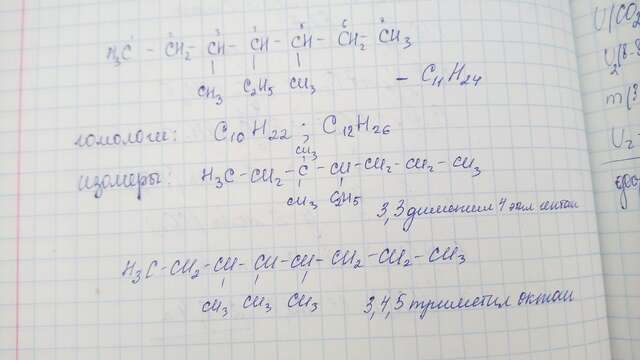 H₃C - CH₂ - CH - CH - CH - CH₂ - CH₃
CH₃ C₂H₅ CH₃ - C₁₁H₂₄
гомологи: C₁₀H₂₂; C₁₂H₂₆
CH₃
изомеры: H₃C-CH₂-C-CH-CH₂-CH₂-CH₃
CH₃ C₂H₅ 3,3 диметил 4 этил гептан
H₃C-CH₂-CH-CH-CH-CH₂-CH₂-CH₃
CH₃ CH₃ CH₃ 3,4,5 триметил октан